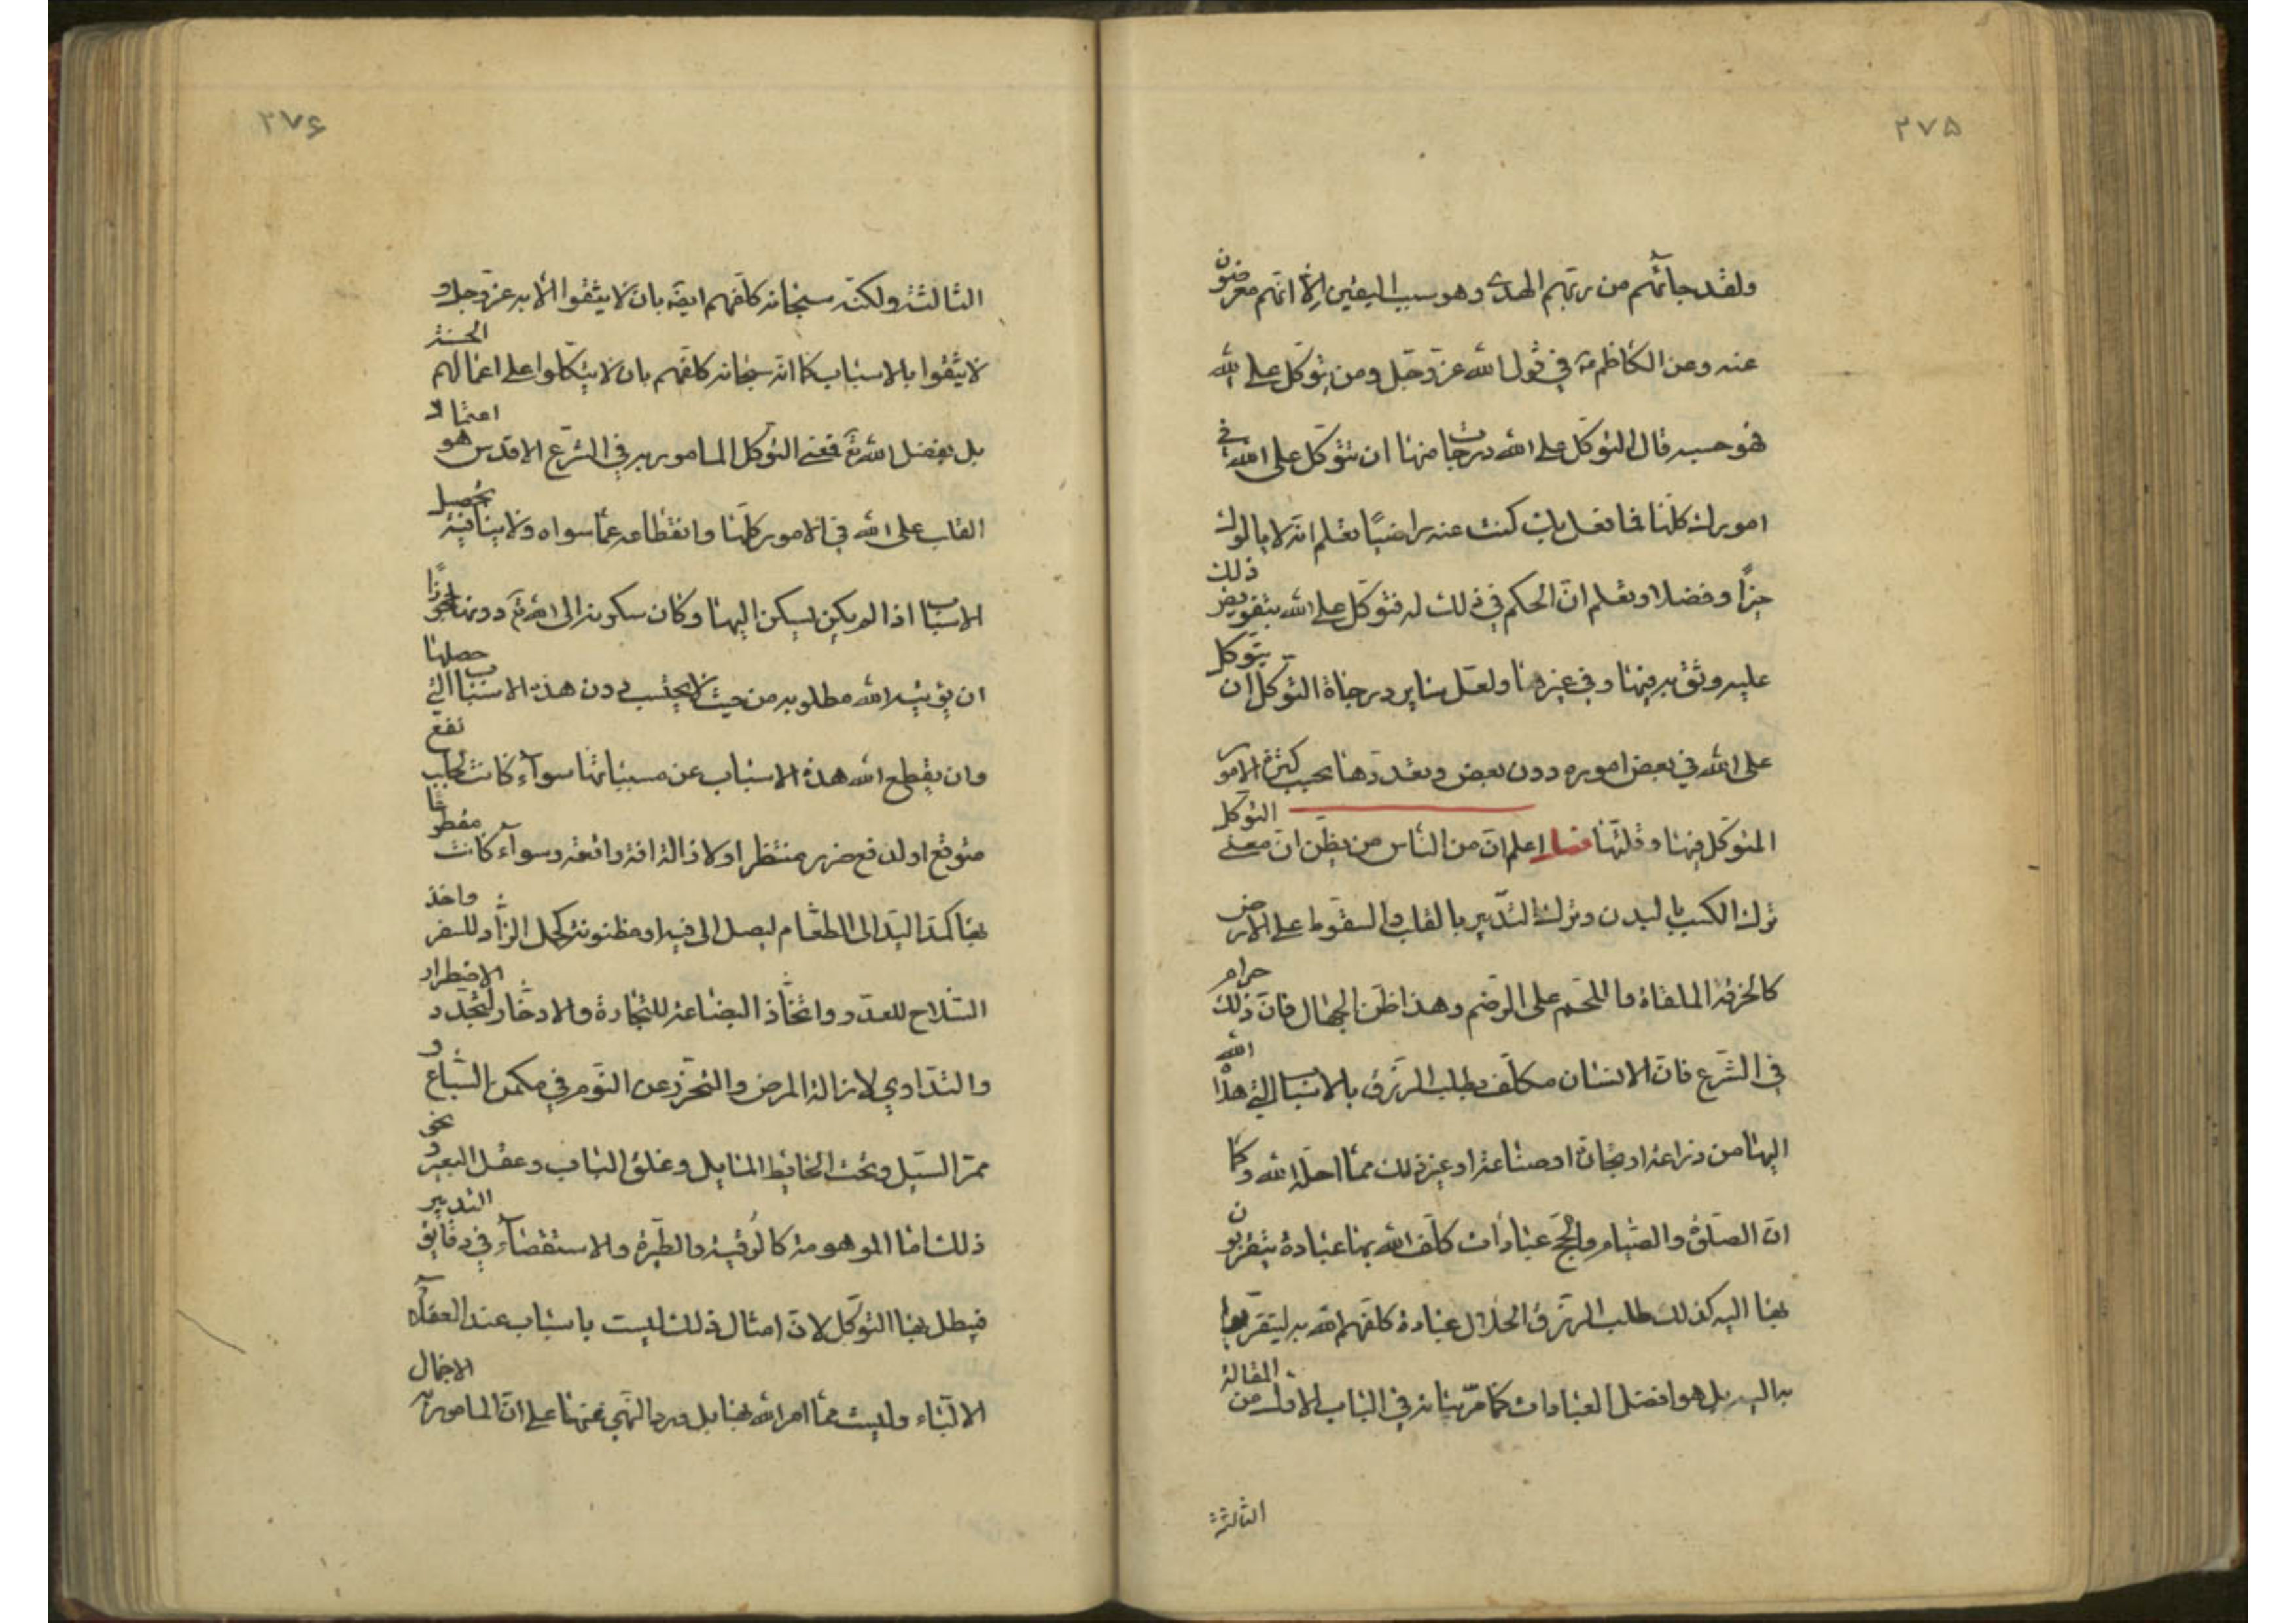 ۲۷۵
ولقد جائهم من ربهم الهدى وهو سبب اليقين الا انهم معرضون
عنه وعن الكاظم ع في قول الله عز وجل ومن يتوكل على الله
فهو حسبه قال التوكل على الله درجات منها ان تتوكل على الله في
امورك كلها فما فعل بك كنت عنه راضيا تعلم انه لا يالوك
خيرا وفضلا وتعلم ان الحكم في ذلك له فتوكل على الله بتفويض ذلك
عليه وثق به فيها وفي غيرها ولعل ساير درجات التوكل ان يتوكل
على الله في بعض اموره دون بعض وتعددها بحسب كثرة الامور
المتوكل فيها وقلتها فصل اعلم ان من الناس من يظن ان معنى التوكل
ترك الكسب بالبدن وترك التدبير بالقلب والسقوط على الارض
كالخرقة الملقاة واللحم على الوضم وهذا ظن الجهال فان ذلك حرام
في الشرع فان الانسان مكلف بطلب الرزق بالاسباب التي هدا الله
اليها من زراعة او تجارة او صناعة او غير ذلك مما احله الله وكما
ان الصلوة والصيام والحج عبادات كلف الله بها عباده يتقربون
بها اليه كذلك طلب الرزق الحلال عبادة كلفهم الله به ليتقربوا
به اليه بل هو افضل العبادات كما مر بيانه في الباب الاول من المقالة
الثالثة
۲۷۶
الثالثة ولكنه سبحانه كلفهم ايضه بان لا يثقوا الا به عز وجل و
لا يثقوا بالاسباب كما انه سبحانه كلفهم بان لا يتكلوا على اعمالهم الحسنة
بل بفضل الله تع فمعنى التوكل المامور به في الشرع الاقدس هو اعتماد
القلب على الله في الامور كلها وانقطاعه عما سواه ولا ينافيه تحصيل
الاسباب اذا لم يكن يسكن اليها وكان سكونه الى الله تع دونها مجوزا
ان يؤتيه الله مطلوبه من حيث لا يحتسب دون هذه الاسباب التي حصلها
وان يقطع الله هذه الاسباب عن مسبباتها سواء كانت لجلب نفع
متوقع او لدفع ضرر منتظر او لازالة افة واقعة وسواء كانت مقطوعا
بها كمد اليد الى الطعام ليصل الى فيه او مظنونة كحمل الزاد للسفر واخذ
السلاح للعدو واتخاذ البضاعة للتجارة والادخار لتجدد الاضطرار
والتداوي لازالة المرض والتحرز عن النوم في مكمن السباع و
ممر السيل وتحت الحايط المايل وغلق الباب وعقل البعير ونحو
ذلك اما الموهومة كالرقية والطيرة والاستقصاء في دقايق التدبير
فيبطل بها التوكل لان امثال ذلك ليست باسباب عند العقلاء
الالباء وليست مما امر الله بها بل ورد النهي عنها على ان المامور به الاجمال